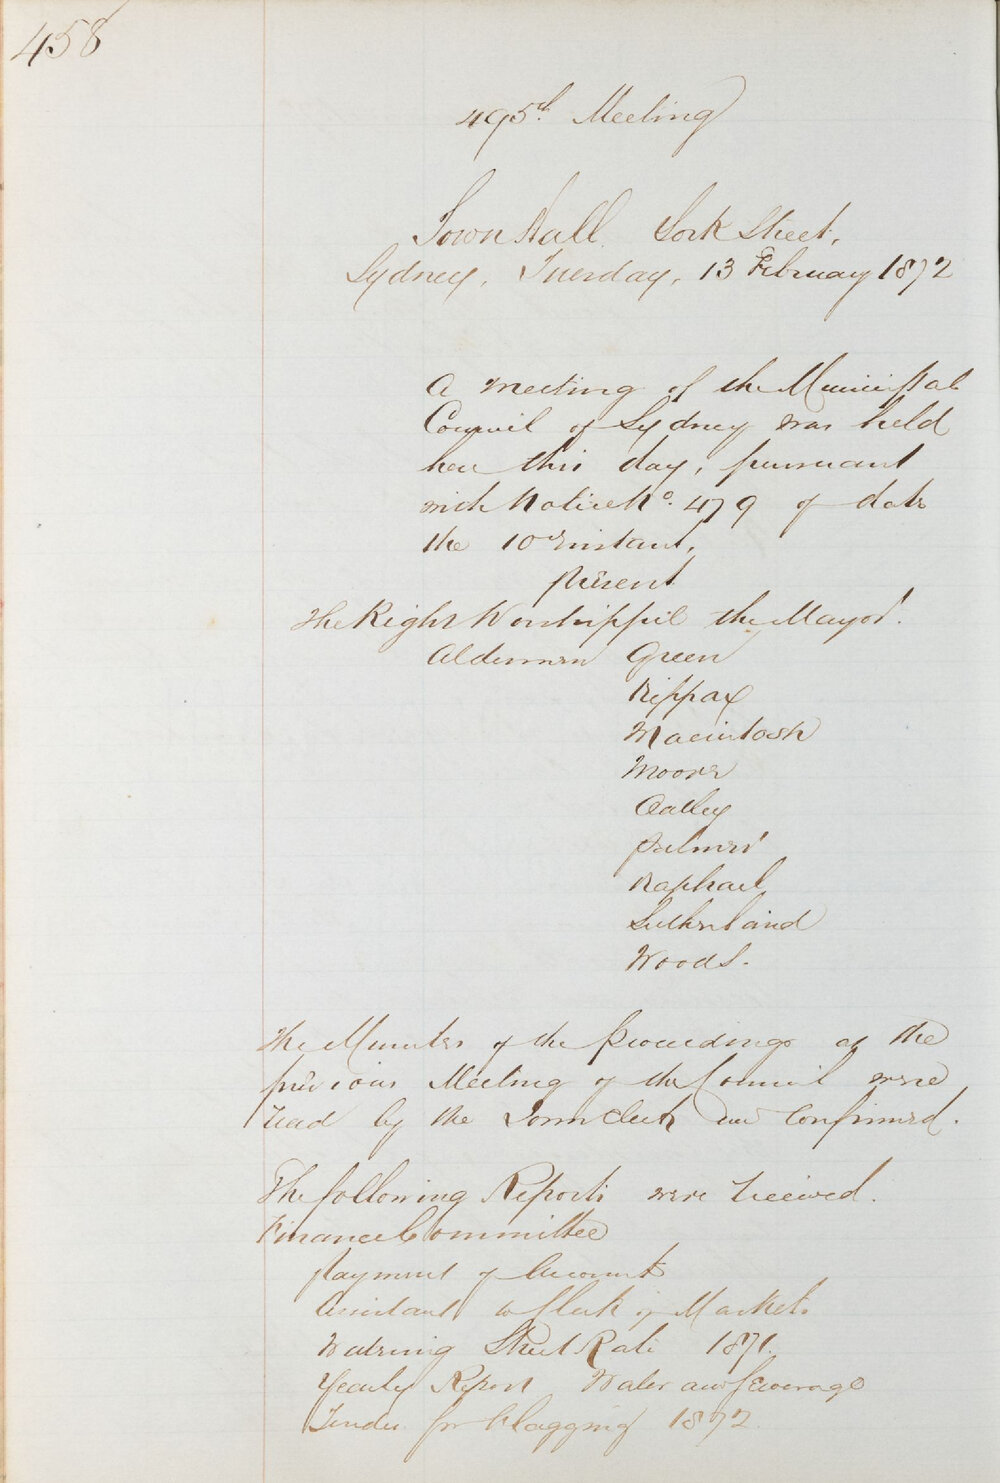 458
495th Meeting
Town Hall York Street,
Sydney, Tuesday, 13 February 1872
A meeting of the Municipal
Council of Sydney was held
here this day, pursuant
with Notice No. 479 of date
the 10th instant,
present
The Right Worshipful the Mayor.
Aldermen Green
Kippax
Macintosh
Moore
Oatley
Palmer
Raphael
Sutherland
Woods.
The Minutes of the Proceedings at the
previous Meeting of the Council were
read by the Town Clerk and Confirmed.
The following Reports were received.
Finance Committee
Payment of Accounts
Assistant to Clerk of Markets
Watering Street Rate 1871.
Yearly Report Water and Sewerage
Tender for Flagging 1872.